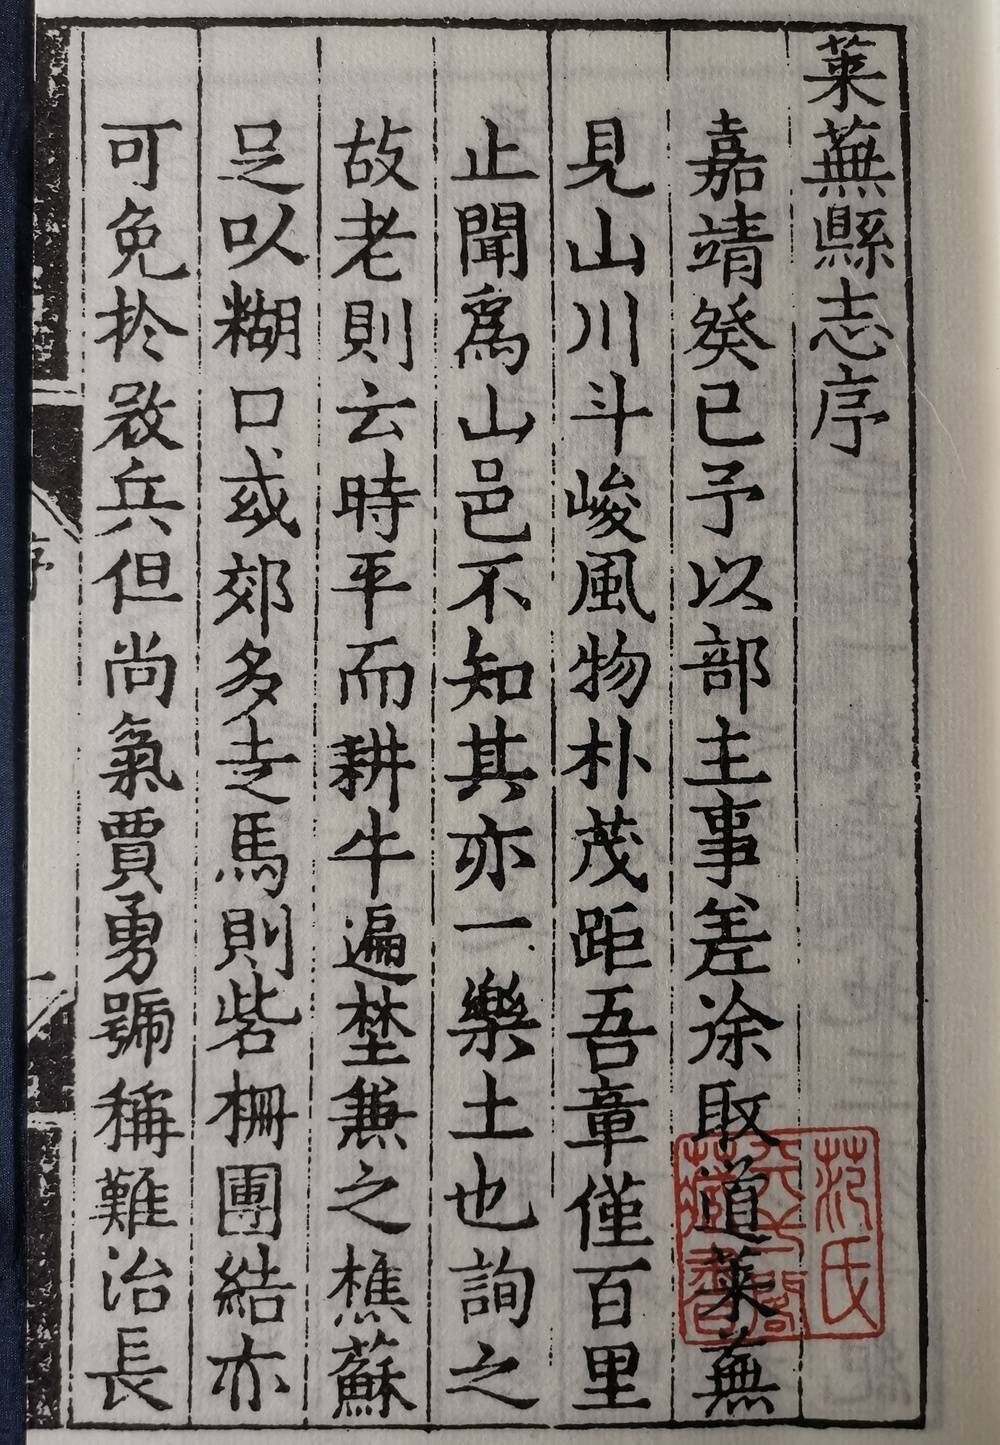 萊蕪縣志序
嘉靖癸巳予以部主事差徐取道萊蕪
見山川斗峻風物朴茂距吾章僅百里
止聞爲山邑不知其亦一樂土也詢之
故老則云時平而耕牛遍埜兼之樵蘇
足以糊口或郊多走馬則砦柵團結亦
可免於殺兵但尚氣賈勇號稱難治長
范氏
天一閣
藏書
序